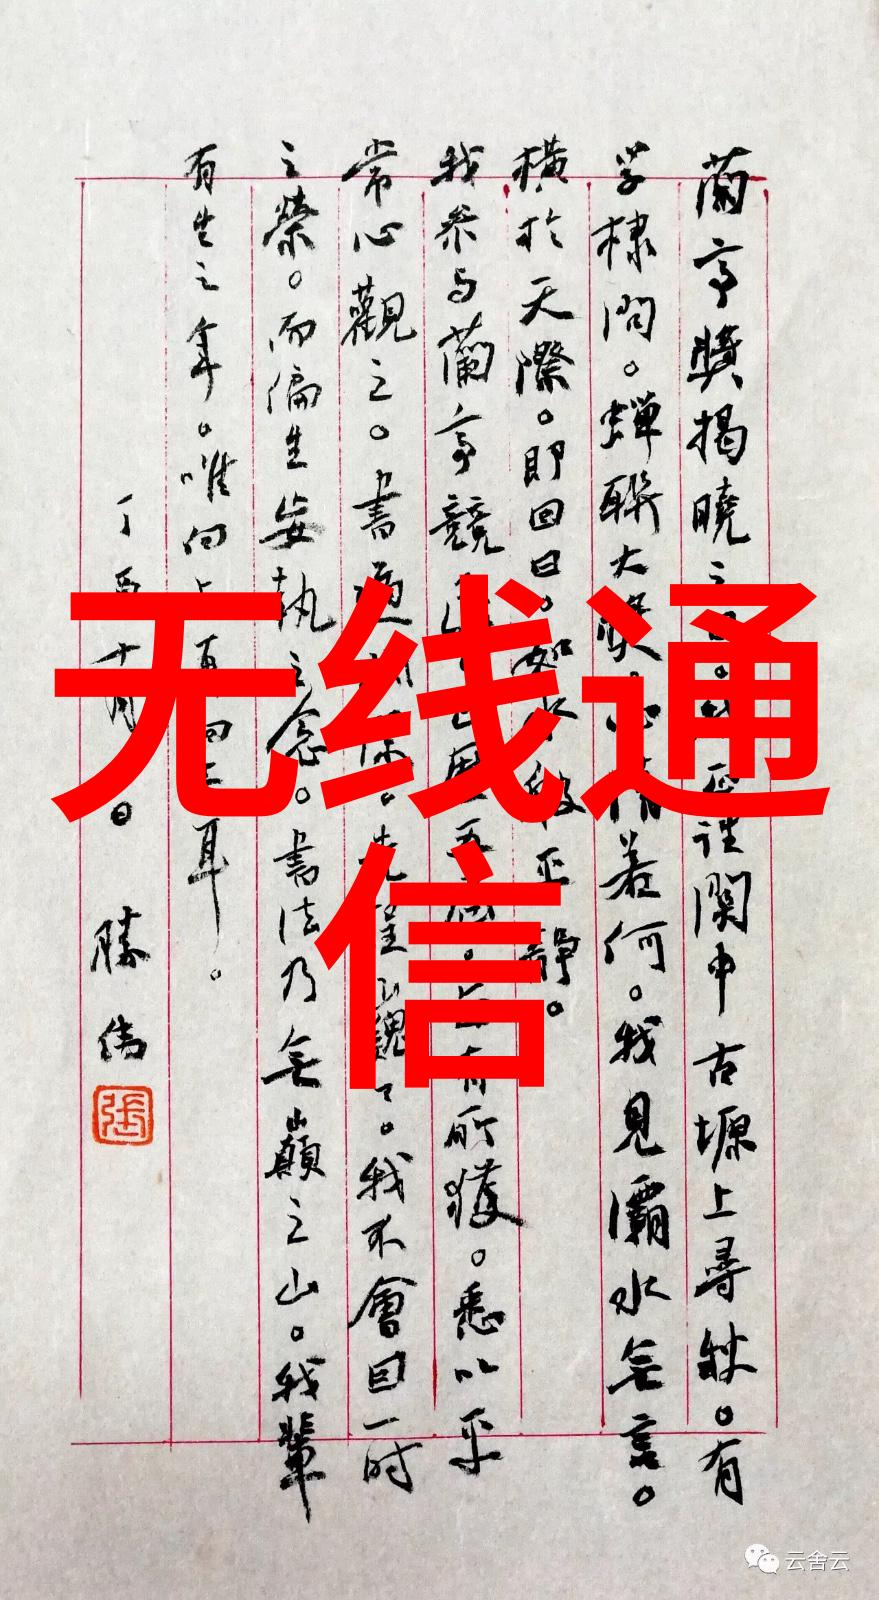 蘭亭獎揭曉之日。我正在關中古塬上尋秋。有
学棣問。蟬聯大獎。心情若何。我見灞水無言。
橫於天際。即回曰。如水般平靜。
我参与蘭亭競已五届。有所獲。悉以平
常心觀之。書。我不會因一时
之榮。而偏生妄執之念。書法乃無巔之山。我輩
有生之年。唯向上再向上耳。
丁酉十月。勝偉
張
无线通
信
云舍云